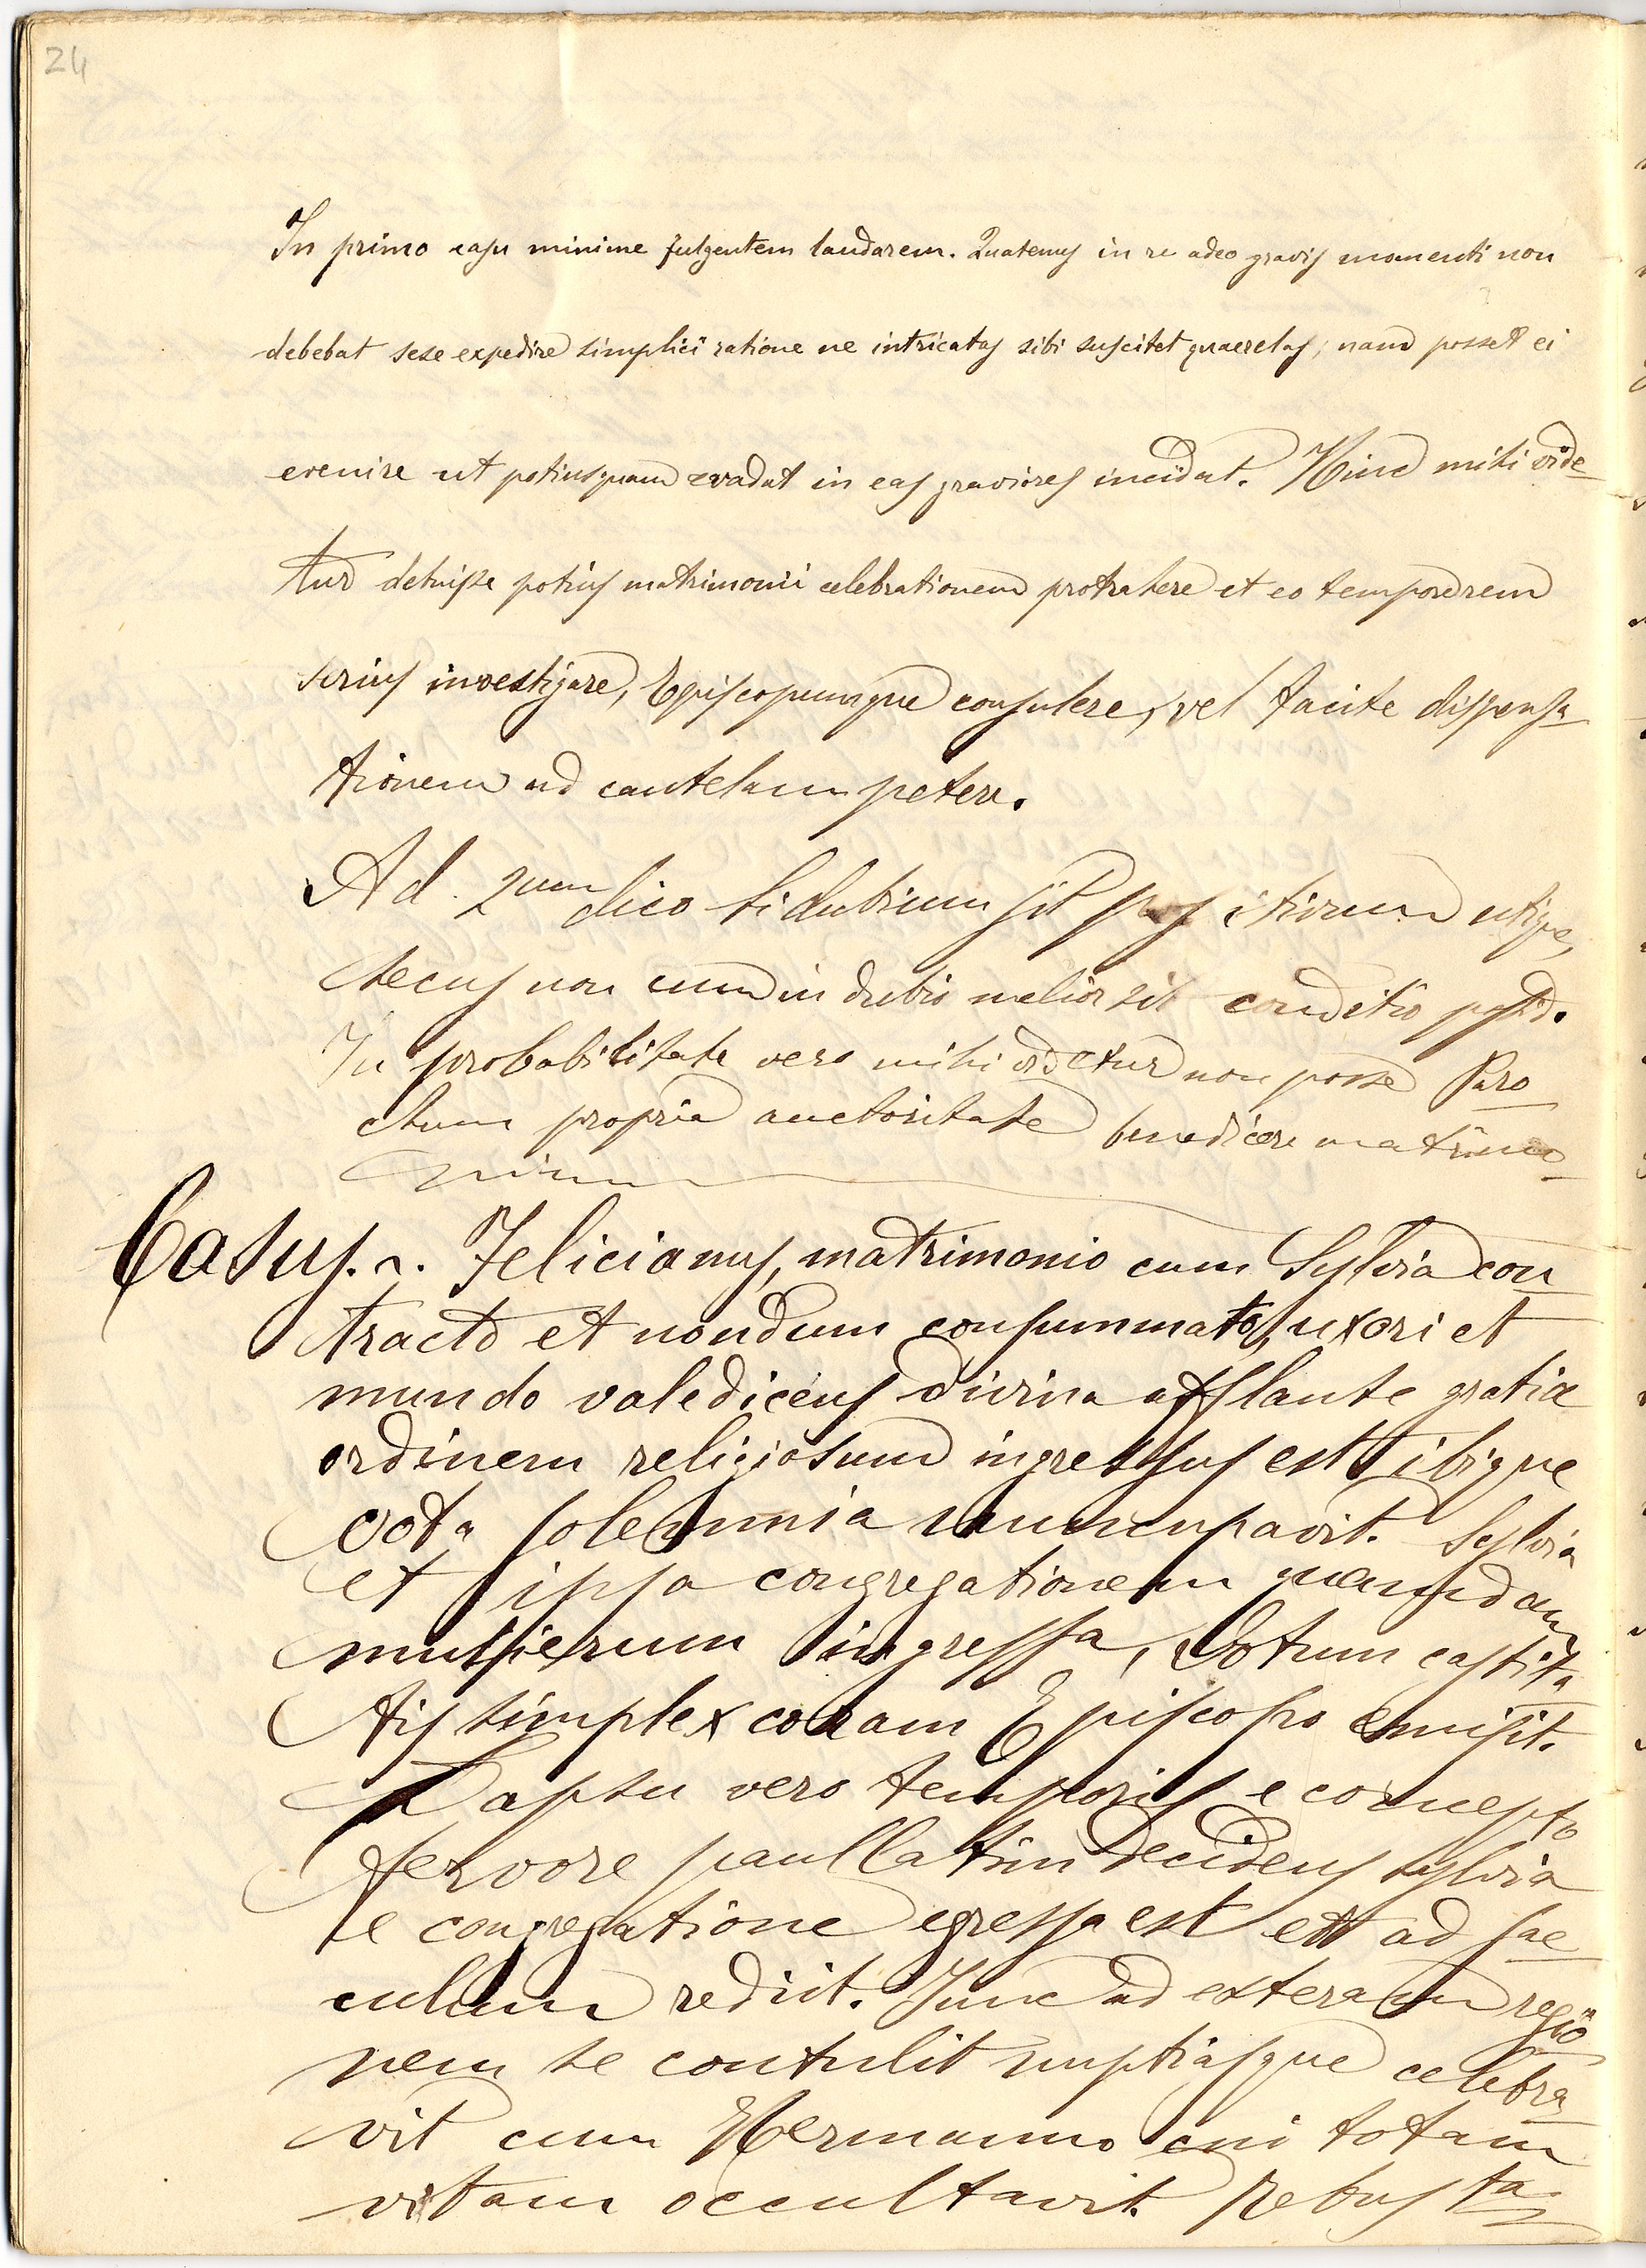 24
In primo casu minime fulgentem laudarem. Quatenus in re adeo gravis momenti non
debebat sese expedire simplici ratione ne intricatas sibi suscitet quaerelas, nam posset ei
evenire ut potiusquam evadat in eas graviores incidat. Hinc mihi vide-
tur debuisse potius matrimonii celebrationem protrahere et eo tempore rem
serius investigare, Episcopumque consulere, vel tacite dispensa-
tionem ad cautelam petere.
Ad 2um dico si dubium sit positivum utique,
secus non cum in dubio melior sit conditio possid.
In probabilitate vero mihi videtur non posse Paro-
chum propria auctoritate benedicere matrimo-
nium
Casus. ~. Felicianus, matrimonio cum Sylvia con-
tracto et nondum consummato, uxori et
mundo valedicens divina afflante gratia
ordinem religiosum ingressus est ibique
vota solemnia nuncupavit. Sylvia
et ipsa congregationem quamdam
mulierum ingressa, votum castita-
tis simplex coram Episcopo emisit.
Lapsu vero temporis e concepto
fervore paullatim decidens Sylvia
e congregatione egressa est et ad sae-
culum rediit. Tunc ad exteram regio-
nem se contulit nuptiasque celebra-
vit cum Hermanno cui totam
vitam occultavit. Rebus ta-